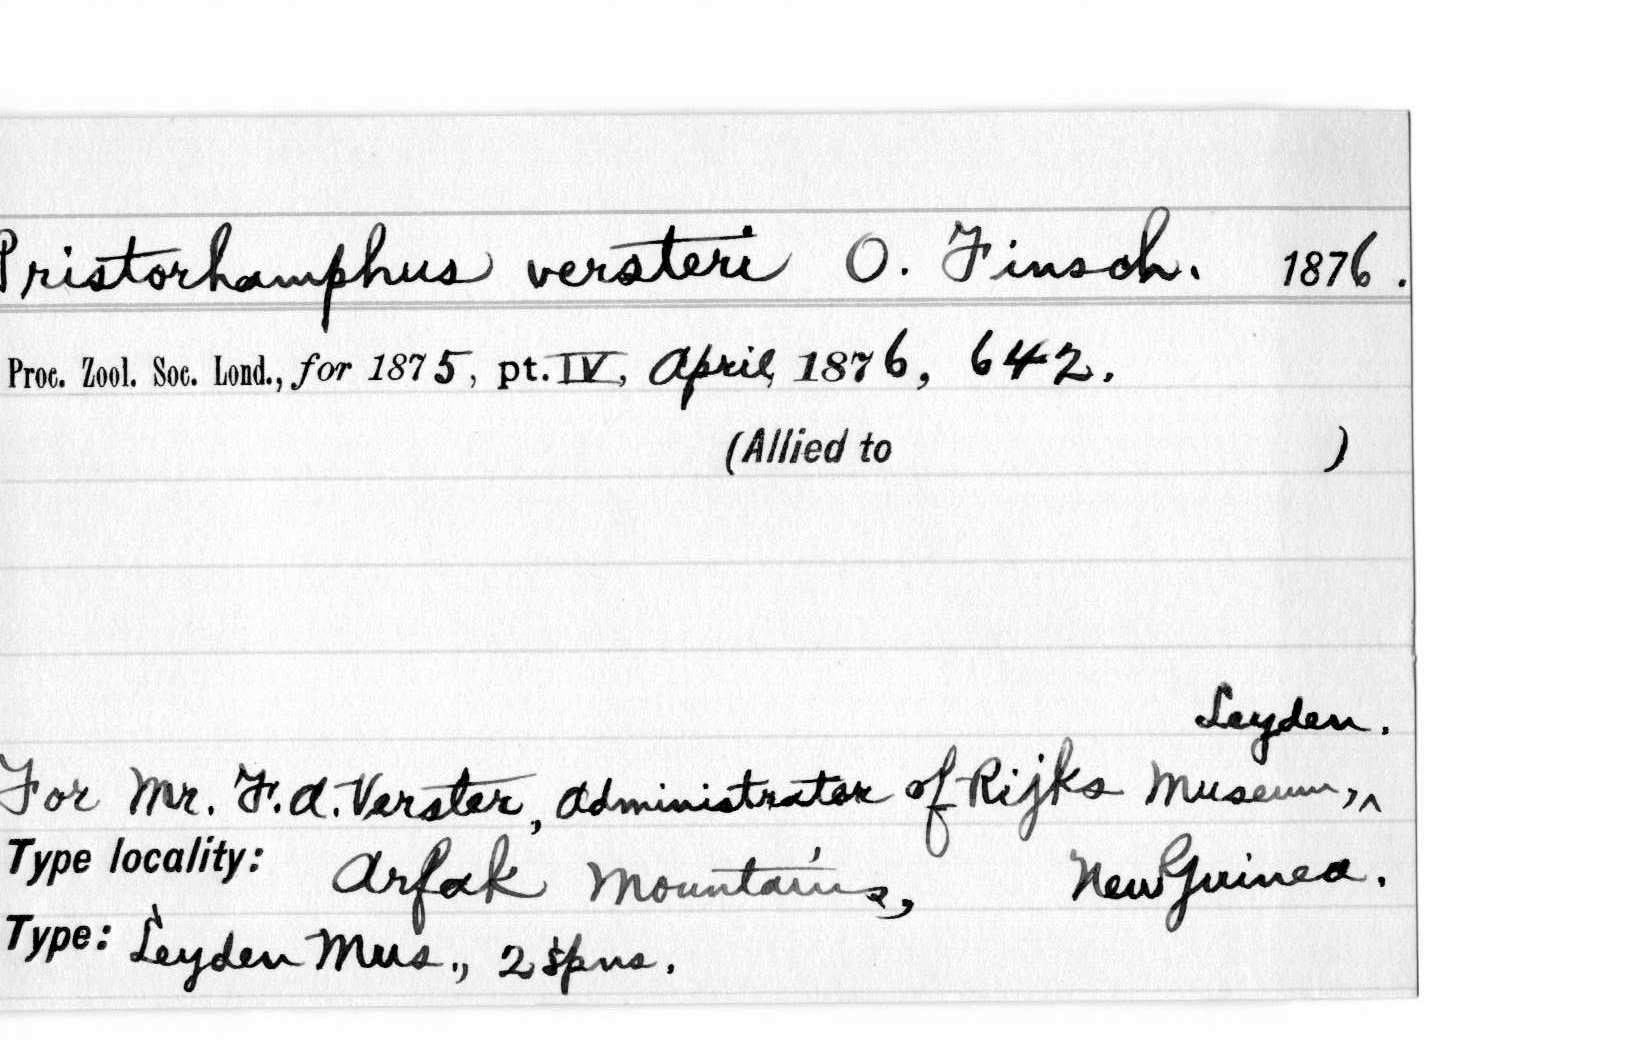 Pristorhamphus versteri O. Finsch. 1876.
Proc. Zool. Soc. Lond., for 1875, pt. IV, April, 1876, 642.
(Allied to )
Leyden.
For Mr. F.A. Verster, Administrator of Rijks Museum, ^
Type locality: Arfak Mountains, New Guinea.
Type: Leyden Mus., 2 spns.